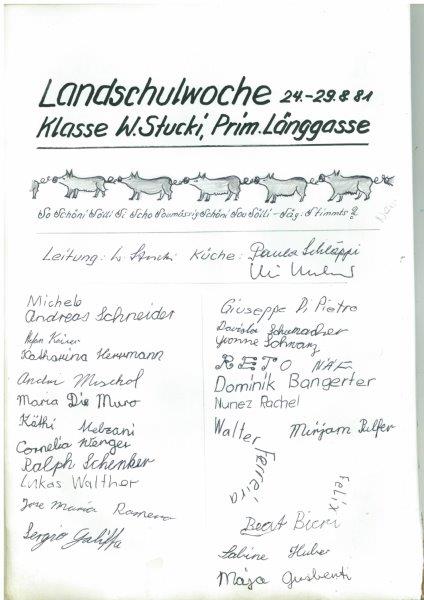 Landschulwoche 24.-29.8.81
Klasse W. Stucki, Prim. Länggasse
So schöni Söili Si scho soumässig schöni Sou Söili - säg: Stimmts?
Leitung: W. Stucki Küche: Paula Schläppi
Michele
Andreas Schneider
Katharina Herrmann
Andri Mischol
Maria Di Muro
Käthi Mebrani
Cornelia Wenger
Ralph Schenker
Lukas Walther
Jose Maria Romero
Sergio Galiffa
Giuseppe Di Pietro
Daniela Schumacher
Yvonne Schwarz
RETO NÄF
Dominik Bangerter
Nunez Rachel
Walter Mirjam Pulfer
Ferreira
Felix
Beat Bieri
Sabine Huber
Maja Gusbenti